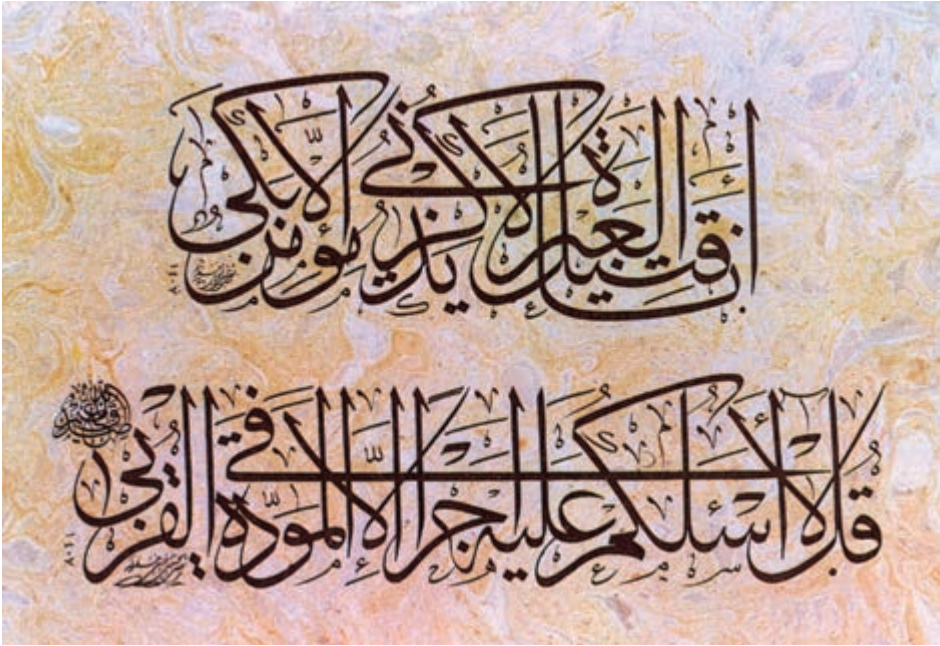 أنا قتيل العبرة لا يذكرني مؤمن إلّا بكى
قُل لا أسئلكم عليه أجرًا إلّا المودّة في القربى